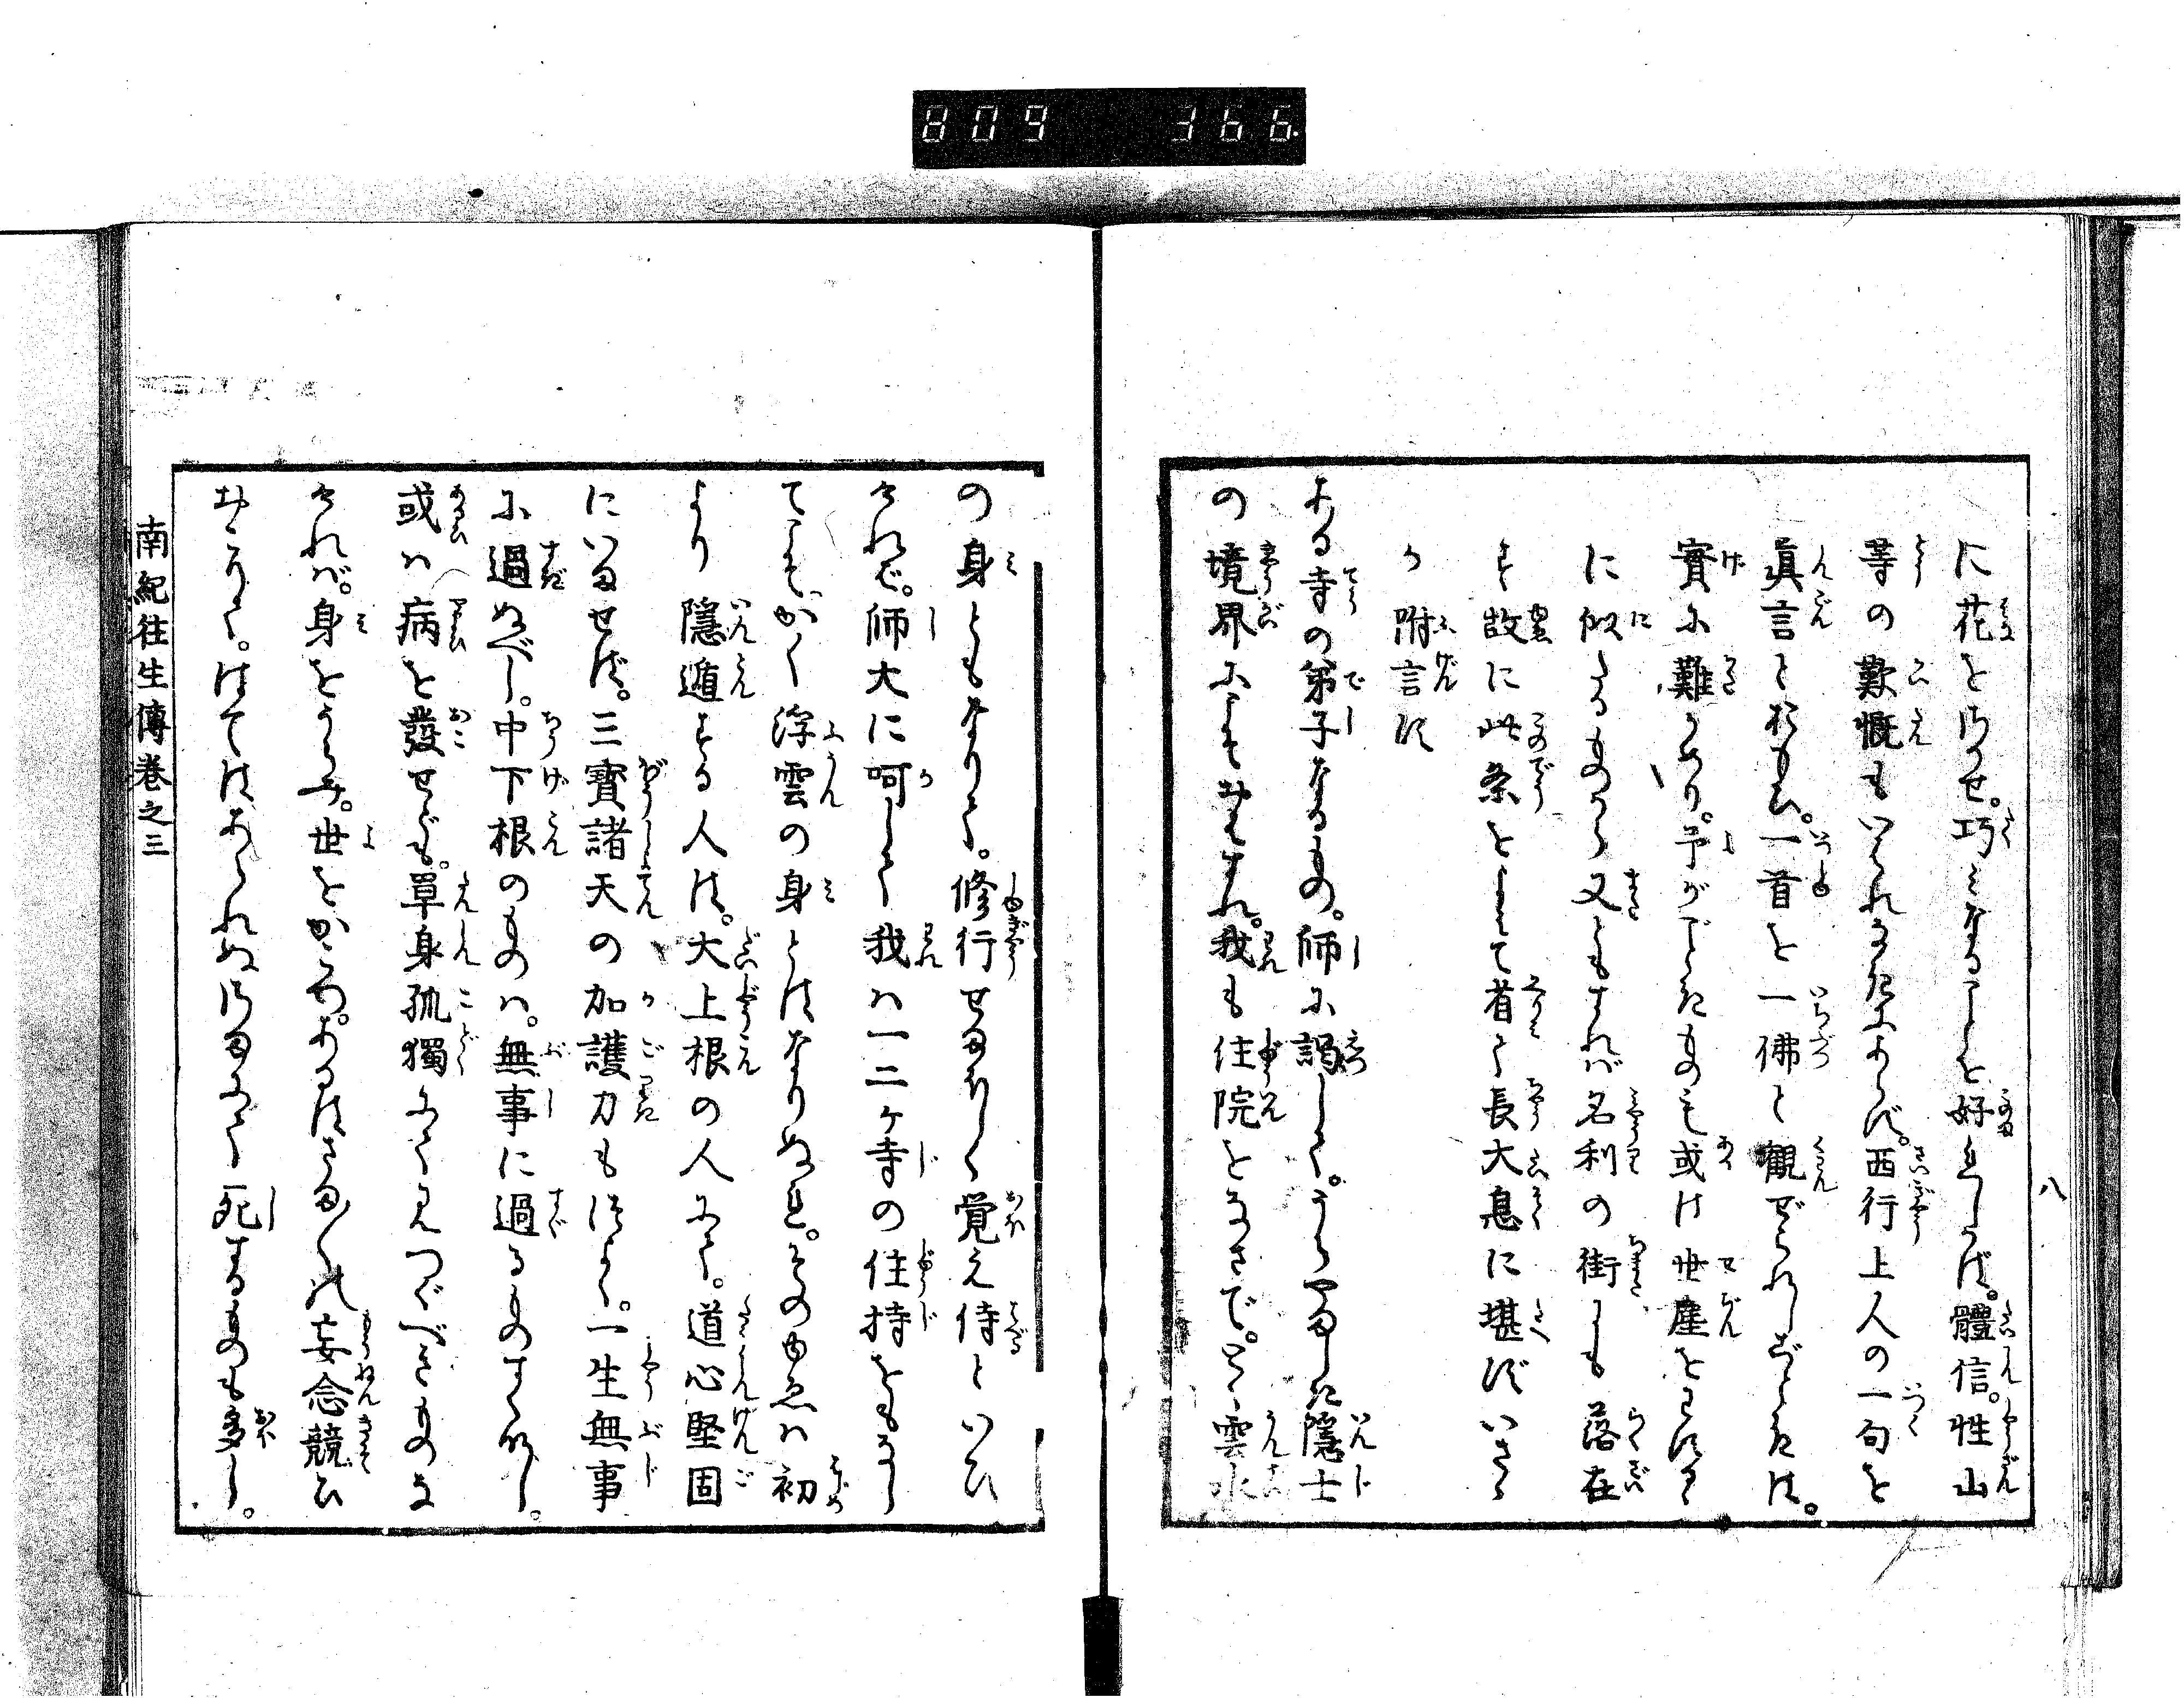 809 366
八
に花をさかせ。巧ミなることを好まれしかば。體信。性山
等の歎慨もいはれなきにあらず。西行上人の一句を
眞言とおもひ。一首を一佛と観ぜられしごときは。
實に難かめり。予がごときものも或は世塵をわするゝ
に似たるものから又ともすれバ名利の街にも落在
す故に此条をよミて省て長大息に堪ずいさゝ
か附言す
ある寺の弟子なるもの。師に謁して。うらやましき隠士
の境界にこそおはすれ。我も住院をなさで。とく雲水
の身ともなりて。修行せまほしく覚え侍といひ
けれど。師大に呵して我ハ一二ケ寺の住持をもなし
てこそ、かく浮雲の身とはなりぬれ。そのゆゑハ初
より隠遁する人は。大上根の人にて。道心堅固
にいませば。三寶諸天の加護力もつよく。一生無事
に過ぬべし。中下根のものハ。無事に過るものすくなし。
或ハ病を發せども。單身孤獨にて見つぐべきものな
ければ。身をうらみ。世をかこち。あるはさま〲の妄念競ひ
おこりて。はてはあられぬさまにて死するものも多し。
南紀往生傳巻之三